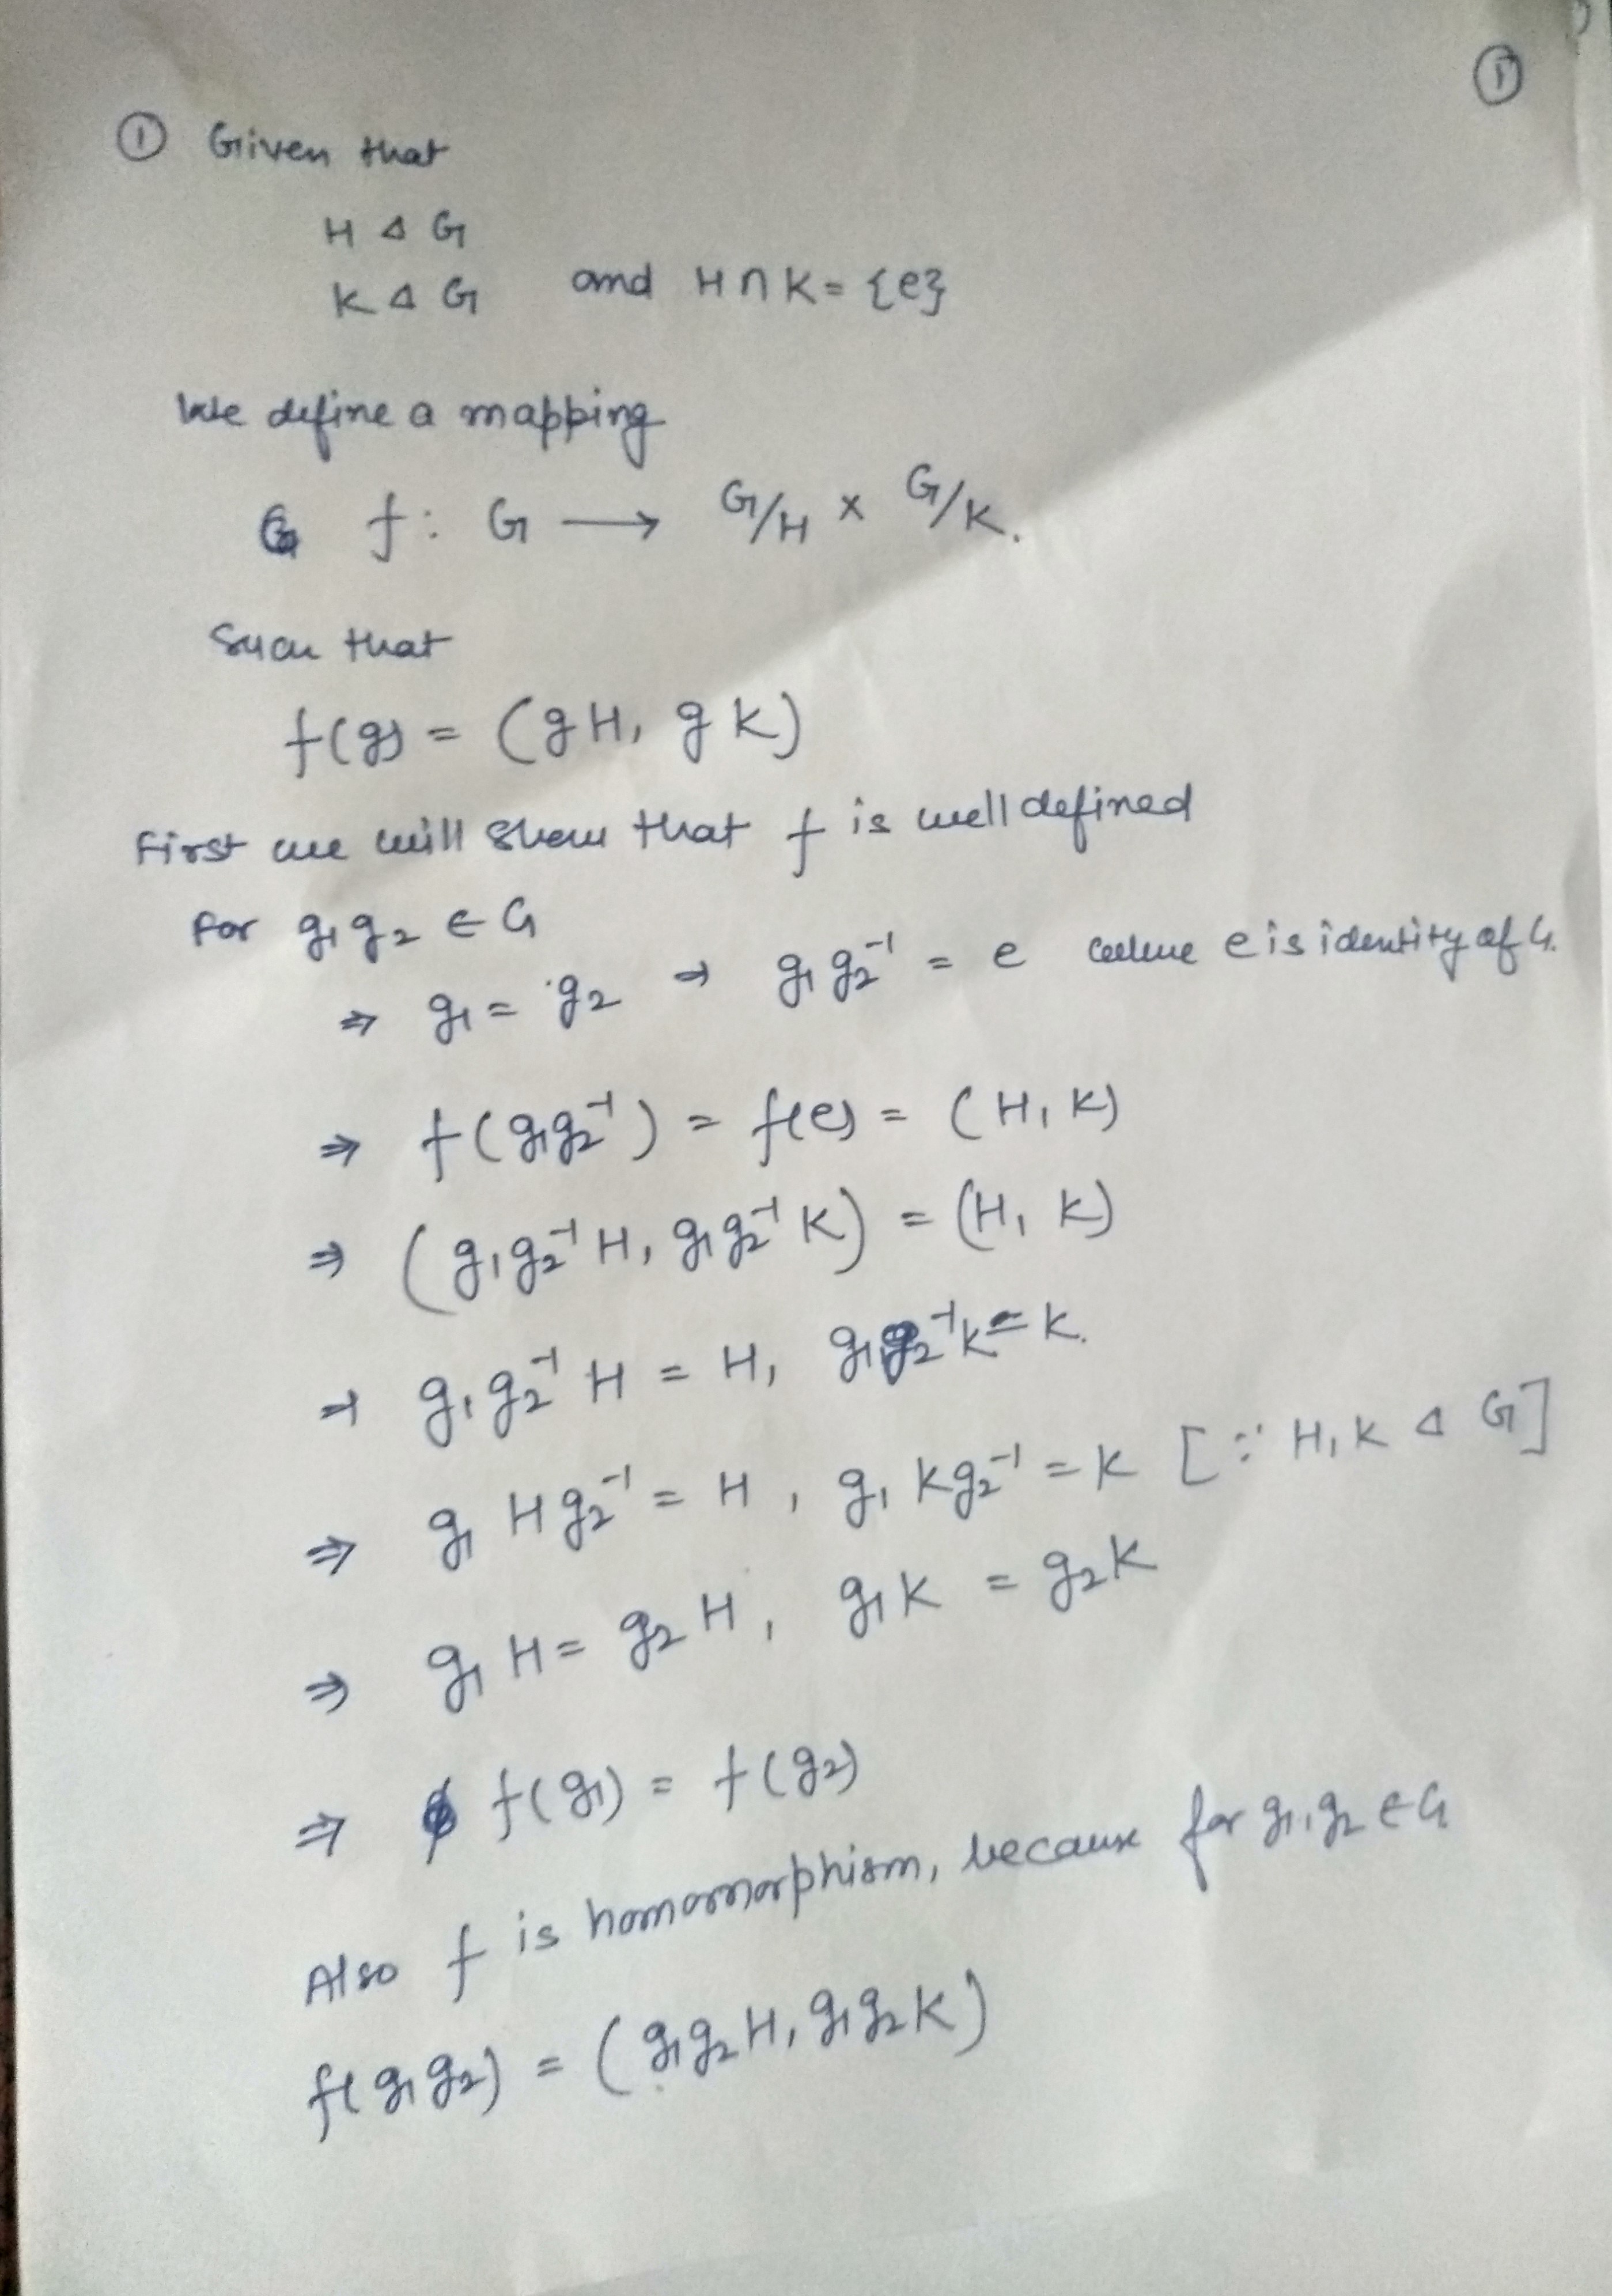 ①
① Given that
H ⊲ G
K ⊲ G and H ∩ K = {e}
We define a mapping
f: G ⟶ G/H × G/K.
Such that
f(g) = (gH, gK)
First we will show that f is well defined
For g₁ g₂ ∈ G
⇒ g₁ = g₂ ⇒ g₁g₂⁻¹ = e where e is identity of G.
⇒ f(g₁g₂⁻¹) = f(e) = (H, K)
⇒ (g₁g₂⁻¹H, g₁g₂⁻¹K) = (H, K)
⇒ g₁g₂⁻¹H = H, g₁g₂⁻¹K = K.
⇒ g₁Hg₂⁻¹ = H, g₁Kg₂⁻¹ = K [∵ H, K ⊲ G]
⇒ g₁H = g₂H, g₁K = g₂K
⇒ f(g₁) = f(g₂)
Also f is homomorphism, because for g₁, g₂ ∈ G
f(g₁g₂) = (g₁g₂H, g₁g₂K)